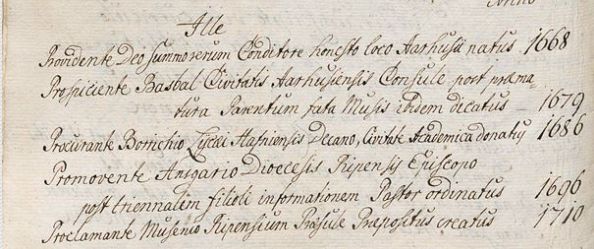 Ille
Providente Deo summorerum Conditore honesto loco Aarhusii natus 1668
Prospiciente Basbal Civitatis Aarhusiensis Consule post præma-
tura Parentum fata Musis ibidem dicatus 1679
Procurante Borrichio Lycæi Hafniensis Decano, Civitate Academica donatus 1686
Promovente Ansgario Dioecesis Ripensis Episcopo
post triennalem filioli informationem Pastor ordinatus 1696
Proclamante Musenio Ripensium Præsule Præpositus creatus 1710